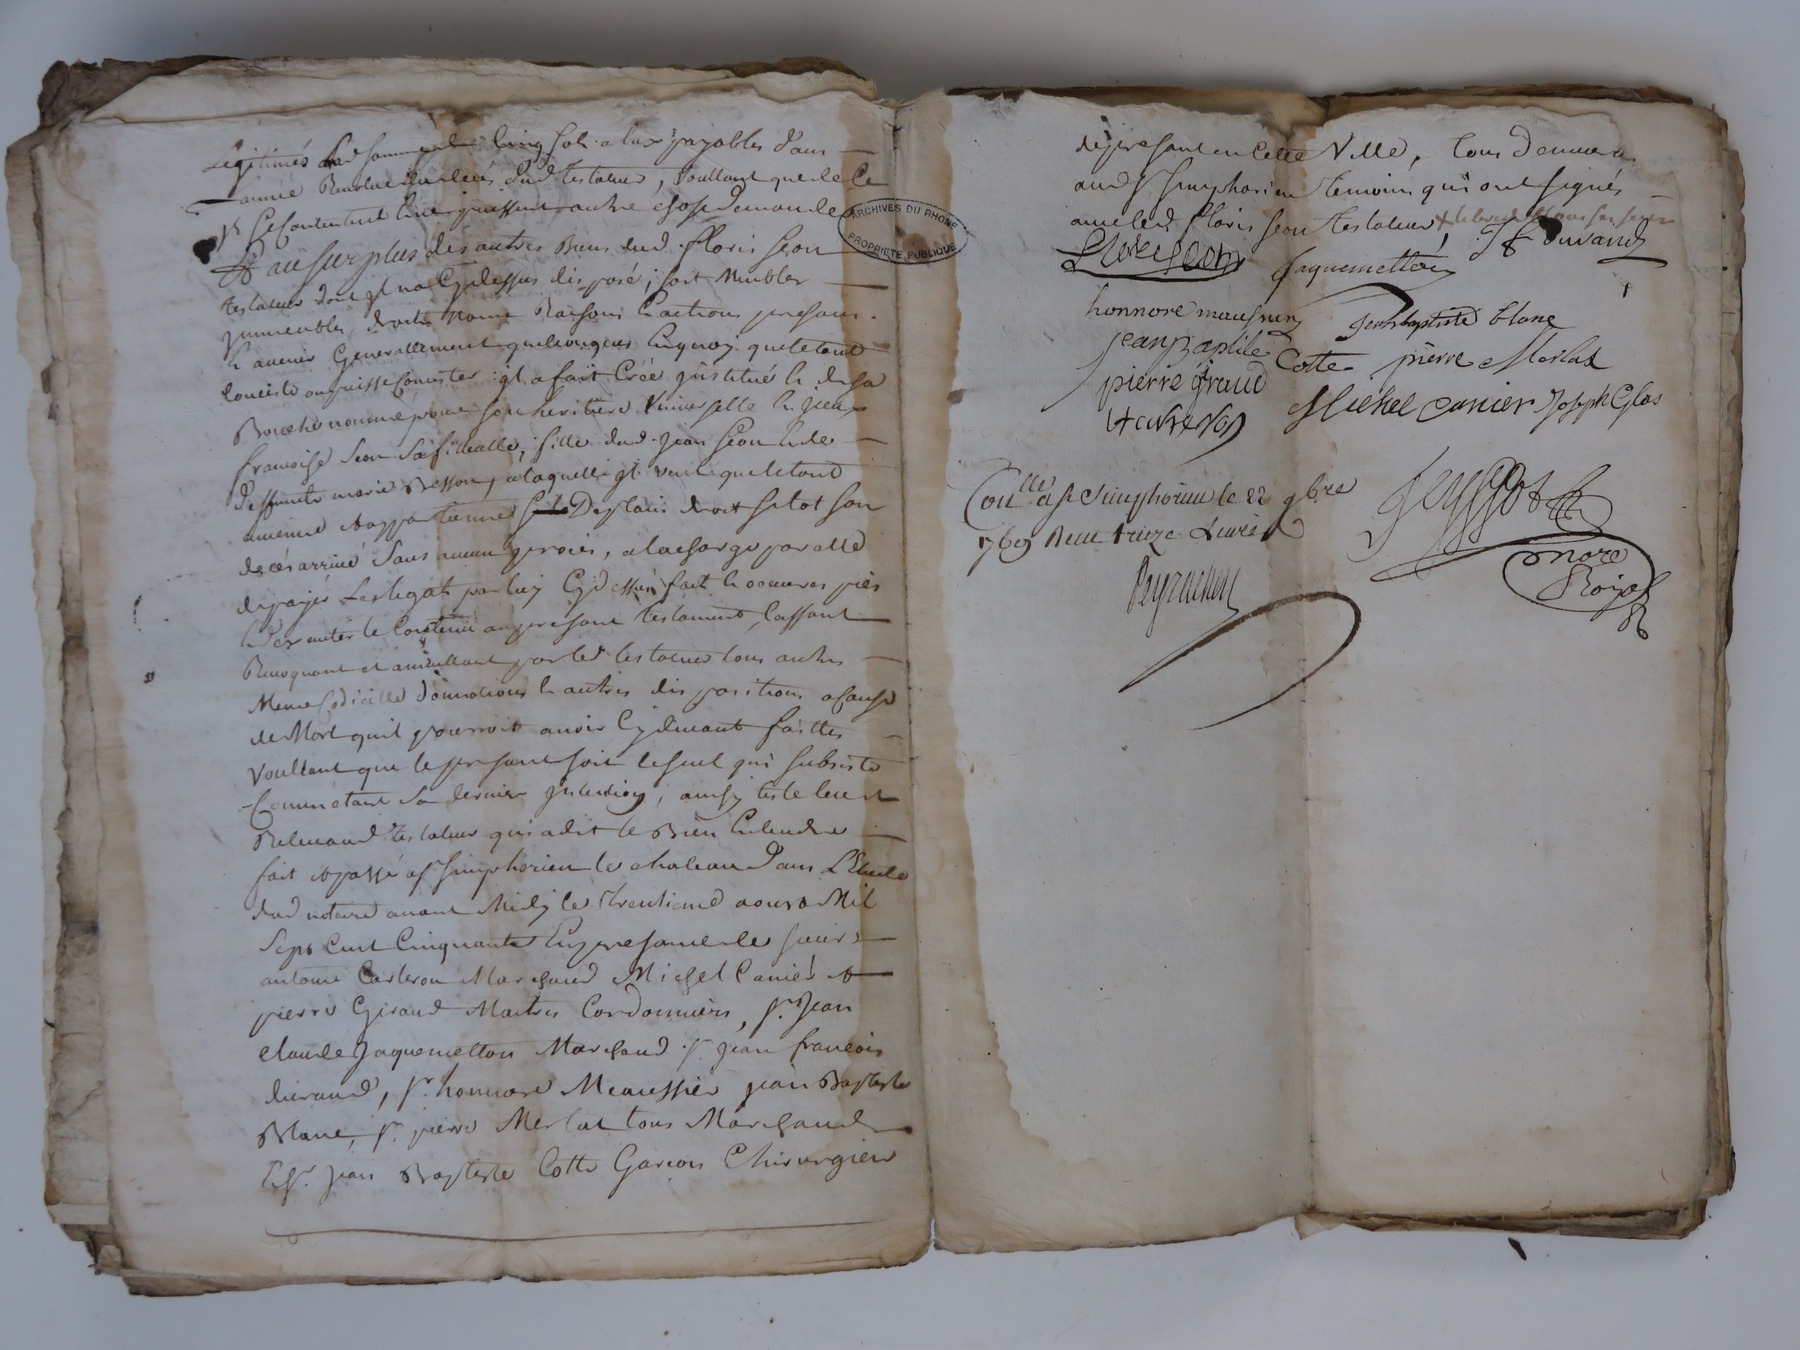 Legitimés lad somme de cinq sols a lax payables dans
lannée Revolue du deces dud testateur, voullant que de ce
Et au surplus des autres Biens dud floris seon
testateur dont jl na Cydessus disposé, soit Meubles
jmmeubles, droits Noms Raisons & actions presens
& avenir Generallement quelconques En quoy que le tout
Consiste ou puisse Consister jl a fait Créé jnstitué & de sa
Bouche nommé pour son heritiere Universelle
francoise seon sa fillealle, fille dud jean seon & de
deffunte marie Besson, a laquelle jl veut que le tout
avienne & appartienne de plain droit sitot son
deces arrivé sans aucun proces, a la charge par elle
de payer Les legats par luy Cydessus fait & oeuvres pies
& dexecuter le Contenu au present testament, Cassant
Revoquant et annullant par led testateur tous autres
Meme Codicille donnations & autres dispositions a cause
de Mort quil pourroit avoir Cydevant faittes
Voullant que le present soit le seul qui subsiste
Comme etant sa derniere jntention, ainsy testé leu et
Releu aud testateur qui a dit le Bien Entendre
fait & passé a st simphorien le chateau dans L'Etude
dud notaire avant Midy le trentieme aoust Mil
Sept Cent Cinquante En presence de sieurs
antoine Carteron Marchand Michel Canier &
pierre Giraud Maitres Cordonniers, sr. Jean
Claude Jaquemetton Marchand sr jean francois
durand, sr. honnore Meaussier jean Baptiste
Blanc, sr. pierre Merlat tous Marchands
& sr. jean Baptiste Cotte Garcon Chirurgien
ARCHIVES DU RHONE
PROPRIETE PUBLIQUE
de present en Cette Ville, tous demeurans
aud st simphorien temoins qui ont signés
avec led floris seon testateur
Floris seon Jaquemetton Jf Durand
honnore jean baptiste blanc
jean Baptiste Cotte pierre Merlat
pierre giraud Michel Canier Joseph Glas
Conllé a st Simphorien le 22 9bre
1769 Receu treize Livres
nore Royal